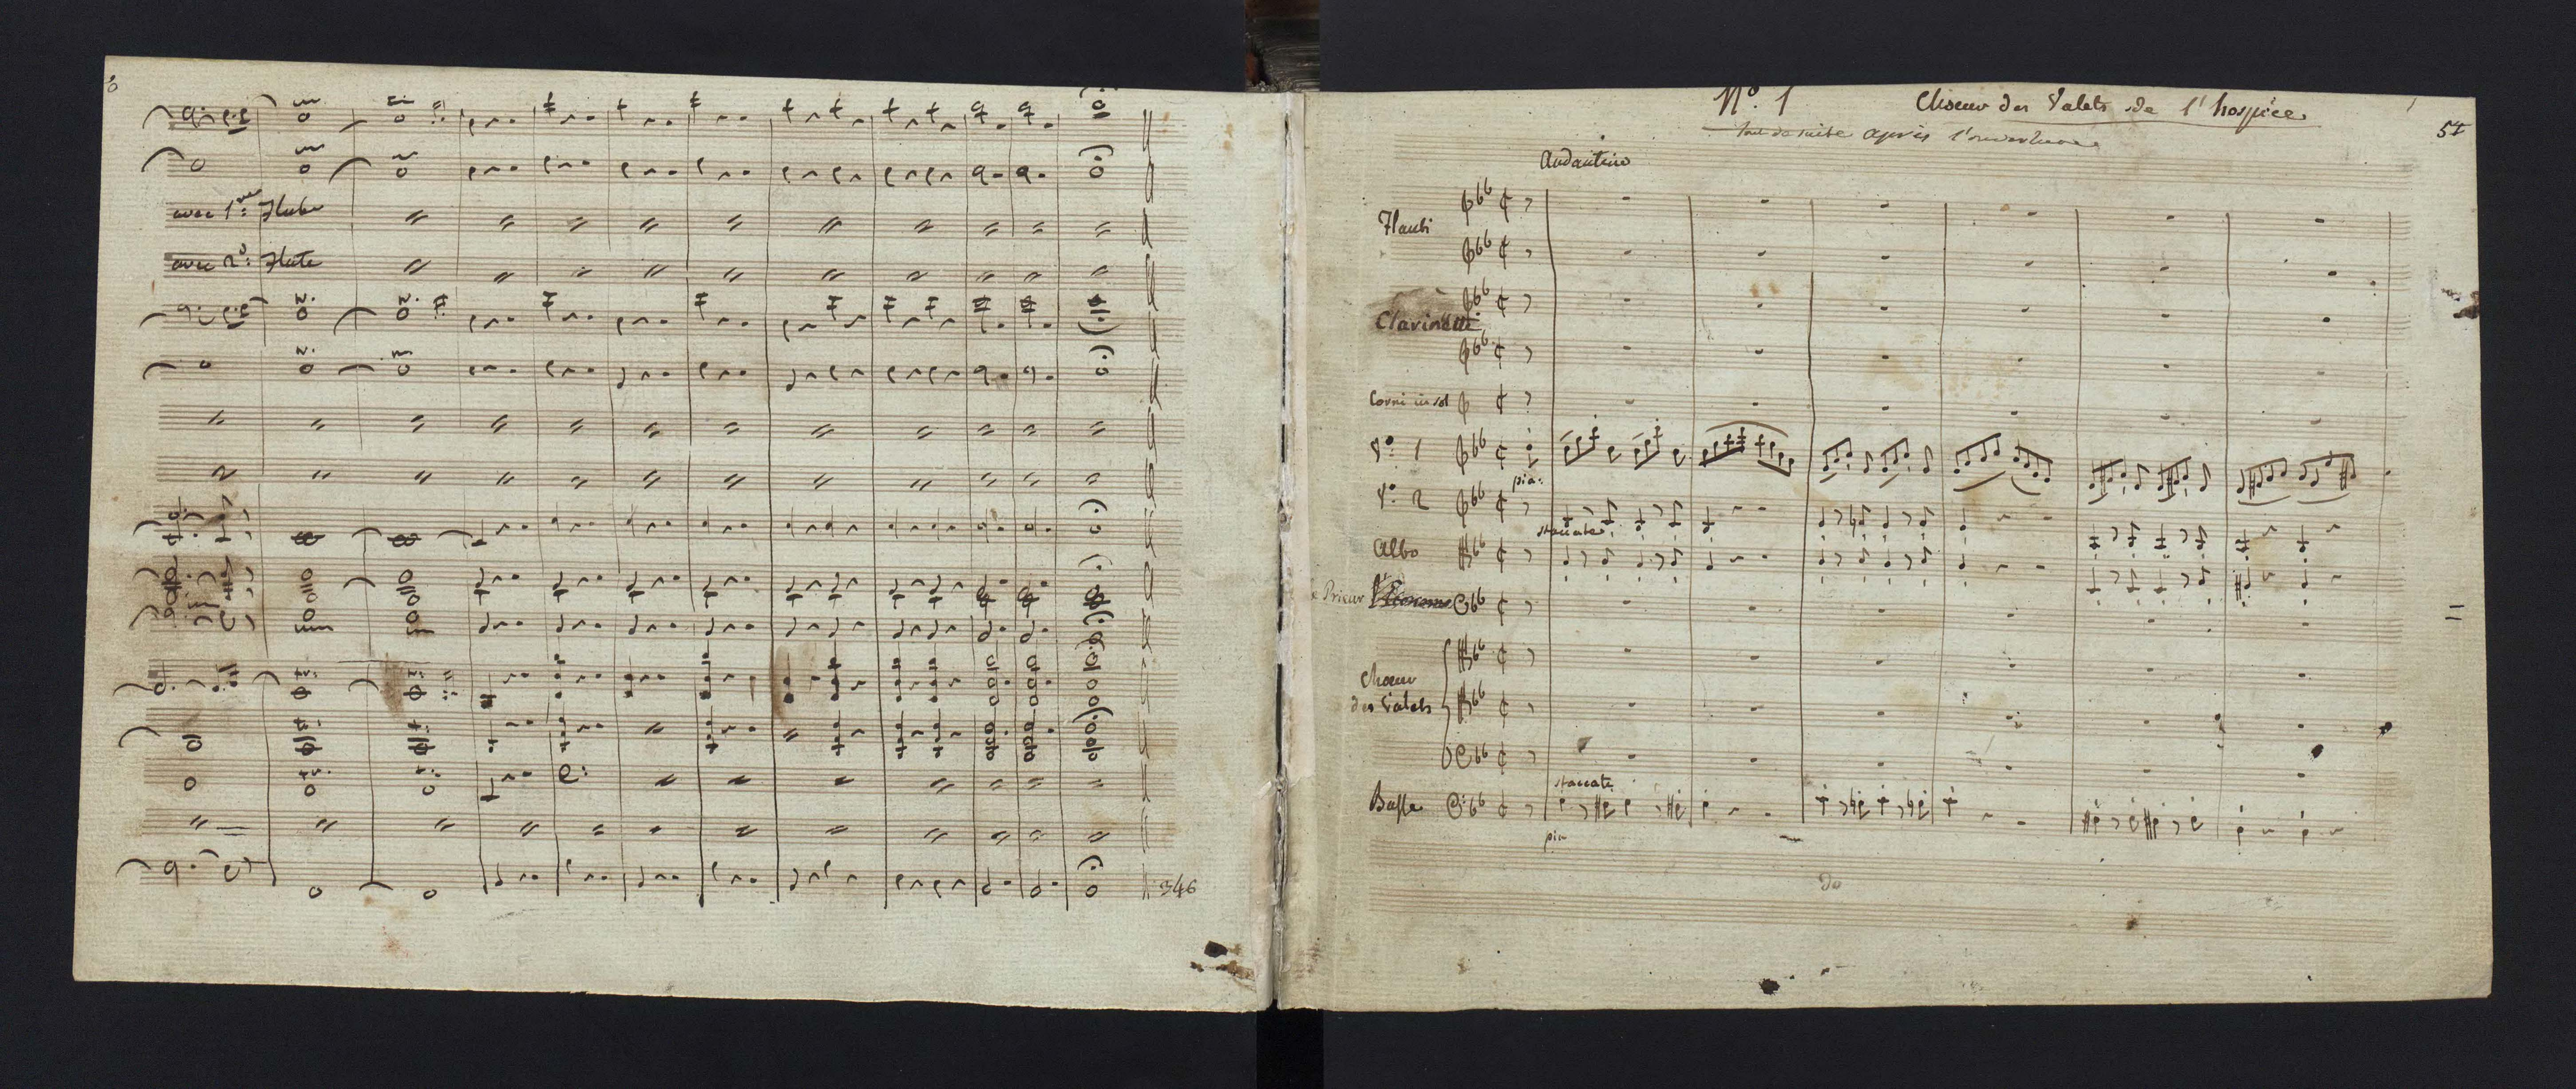 avec 1re: Flute
avec 2d: Flute
346
No. 1 Choeur des Valets de l'hospice
57
tout de suite après l'ouverture
Andantino
Flauti
Clarinetti
Corni in sol
Vo. 1
pia:
Vo. 2
staccato
Alto
Le Prieur
Choeur
des Valets
staccato
Basse
pia